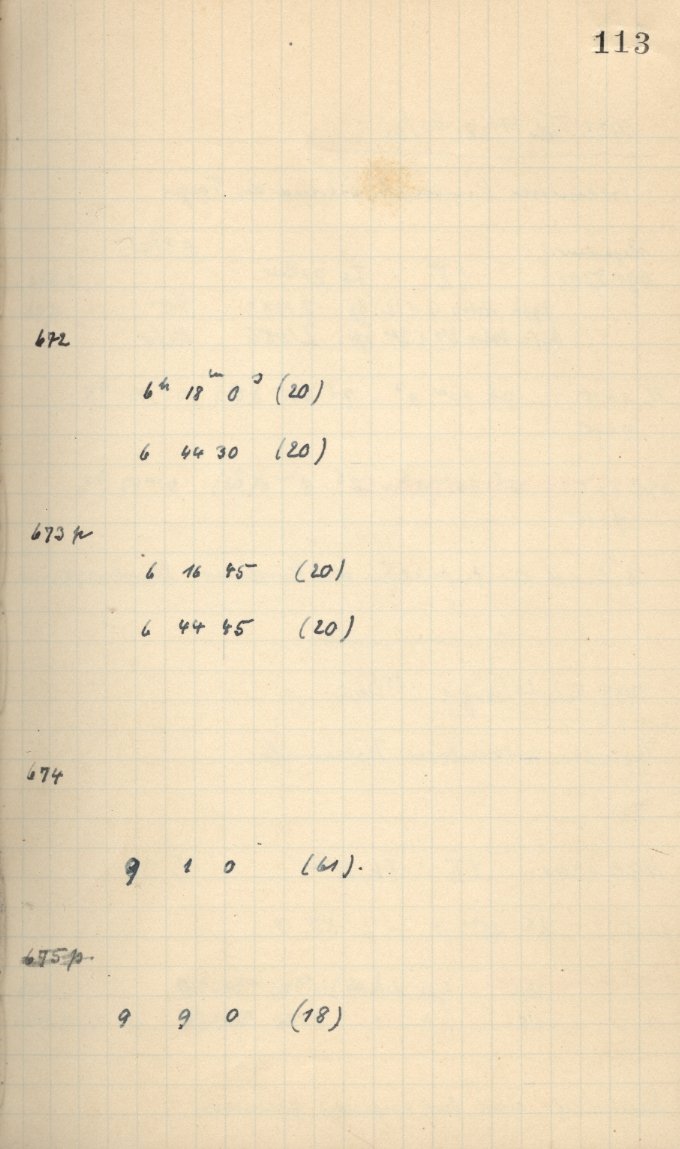 113
672
6h 18m 0s (20)
6 44 30 (20)
673p
6 16 45 (20)
6 44 45 (20)
674
9 1 0 (61).
675p.
9 9 0 (18)